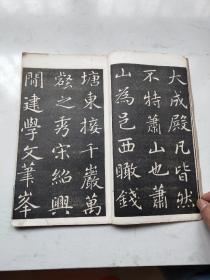 大成殿凡皆然
不特蕭山也蕭
山為邑西瞰錢
塘東接千巖萬
壑之秀宋紹興
間建學文筆峯